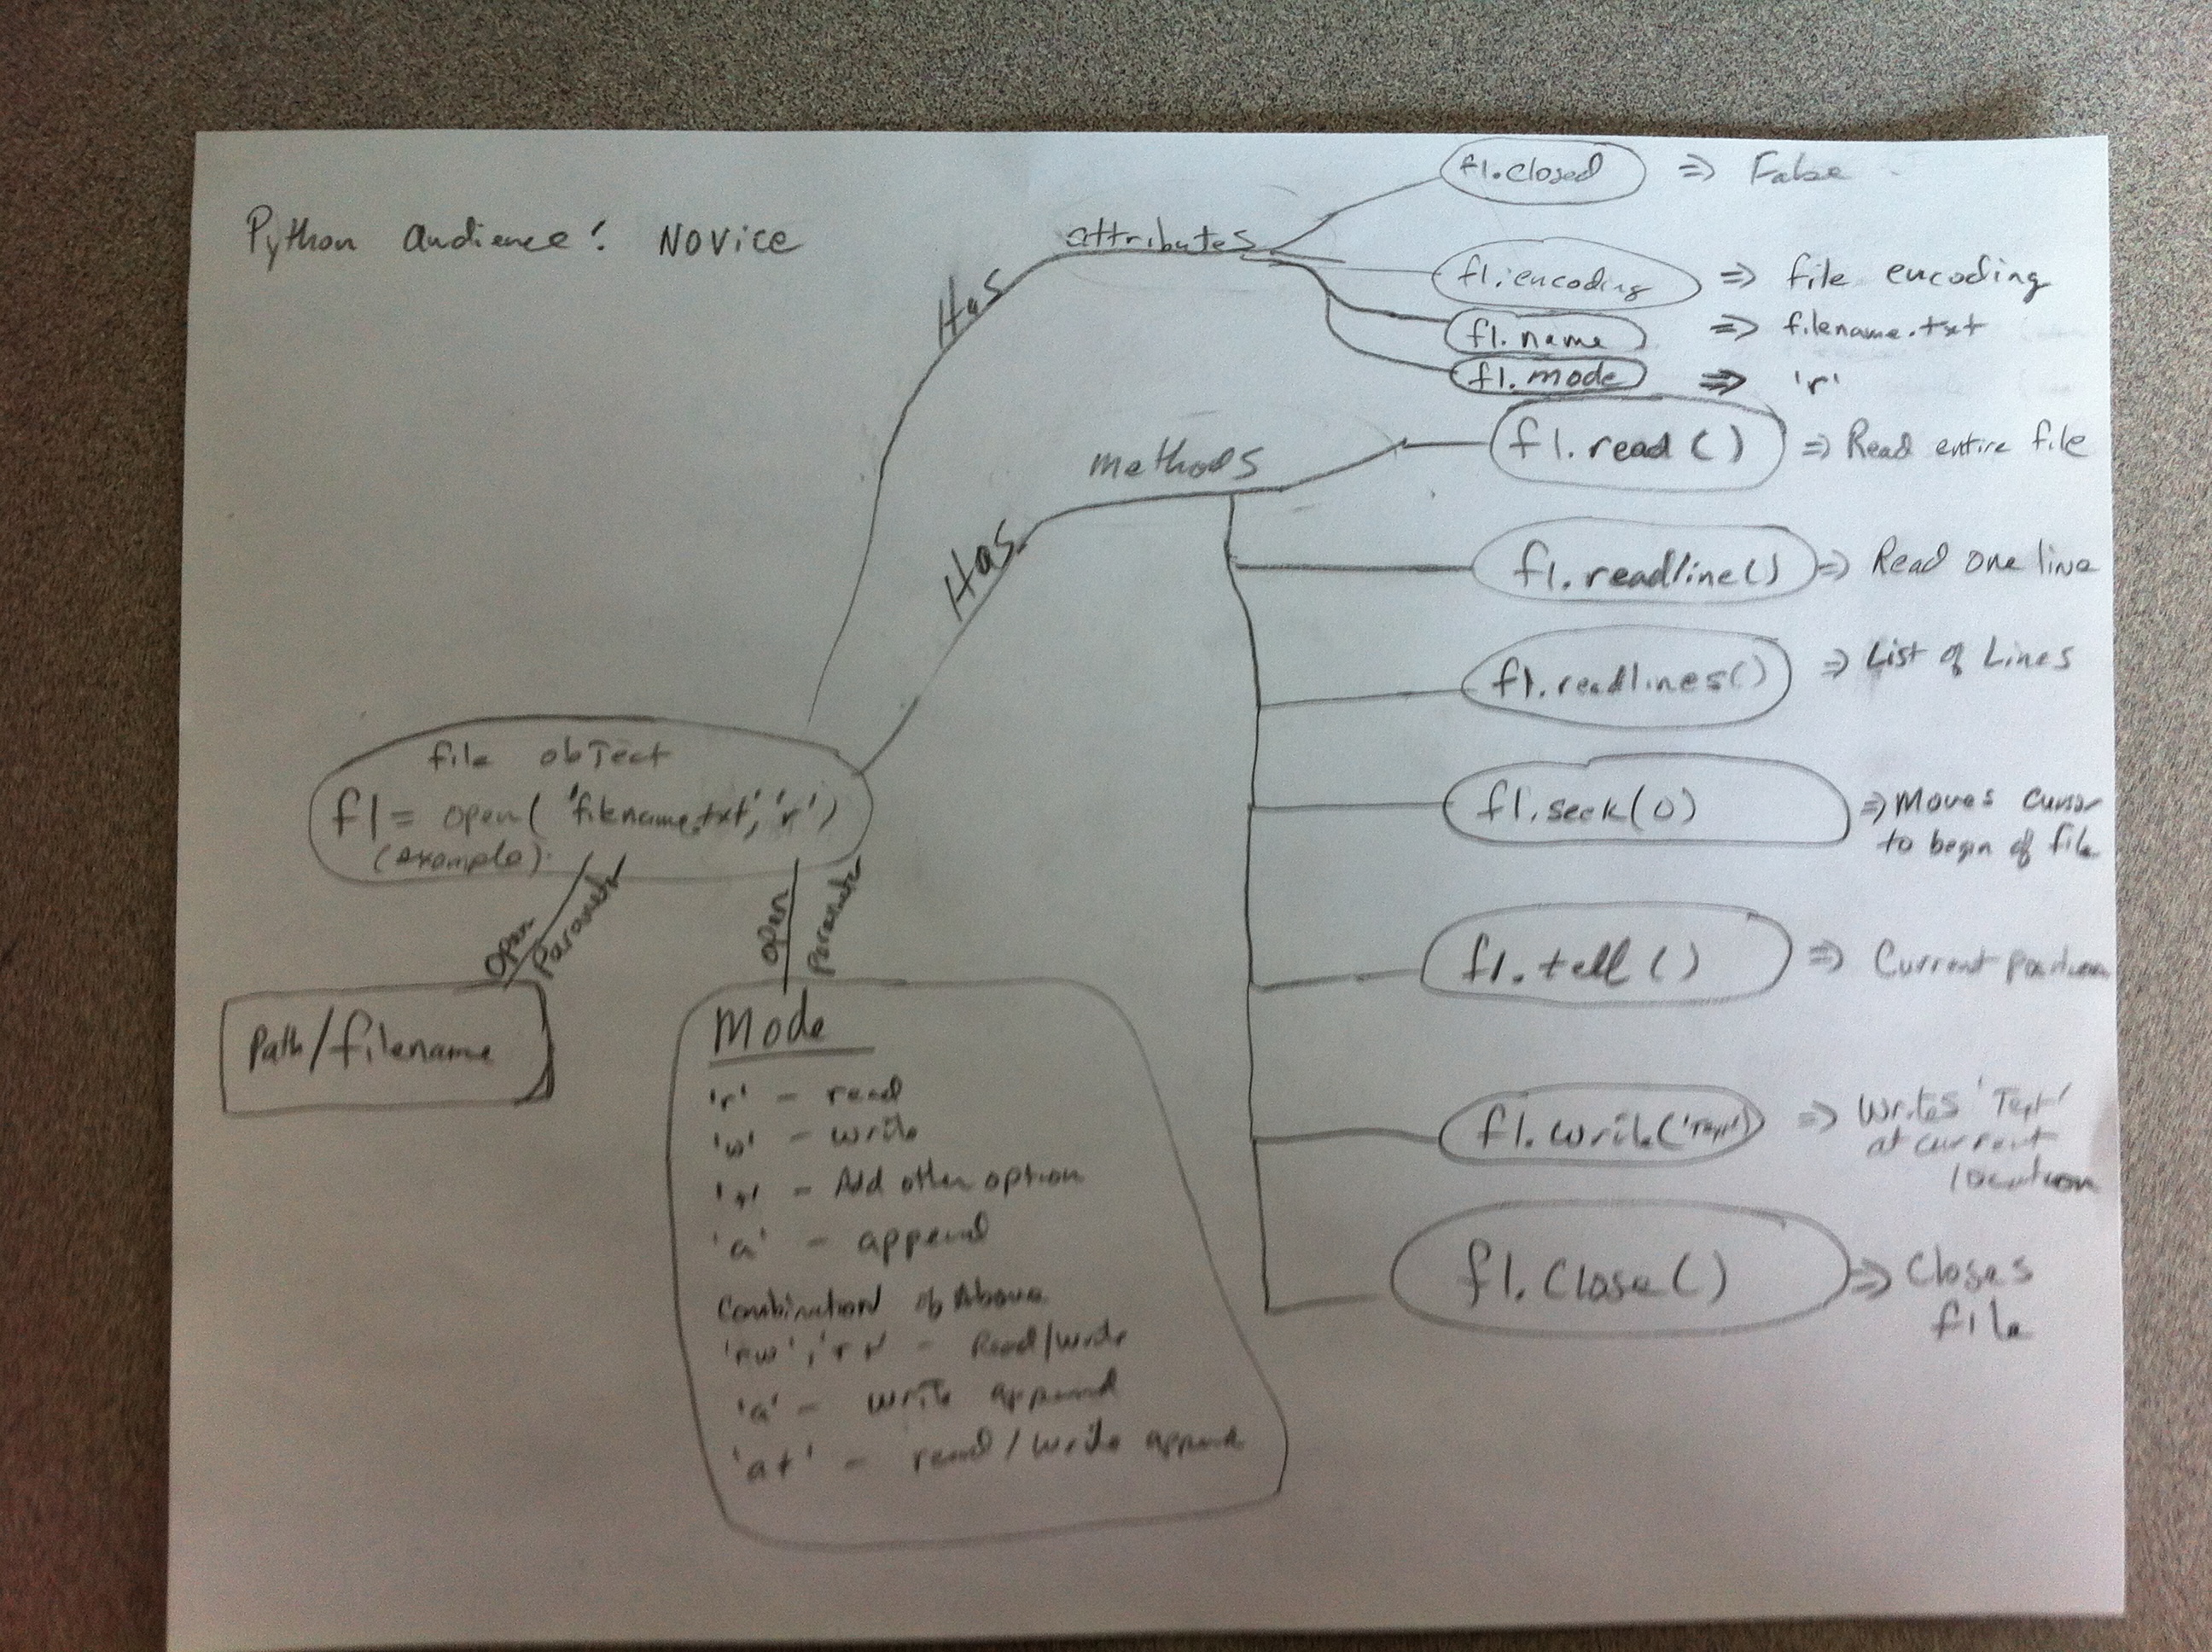 Python audience: Novice
Has
attributes
f1.closed => False
f1.encoding => file encoding
f1.name => filename.txt
f1.mode => 'r'
Has
methods
f1.read() => Read entire file
f1.readline() => Read one line
f1.readlines() => List of Lines
f1.seek(0) => Moves cursor
to begin of file
f1.tell() => Current position
f1.write('Text') => Writes 'Text'
at current
location
f1.close() => Closes
file
file object
f1 = open('filename.txt','r')
(example)
open
open
Path/filename
Mode
'r' - read
'w' - write
'+' - Add other option
'a' - append
Combination of Above
'rw', 'r+' - Read/write
'a' - write append
'a+' - read/write append